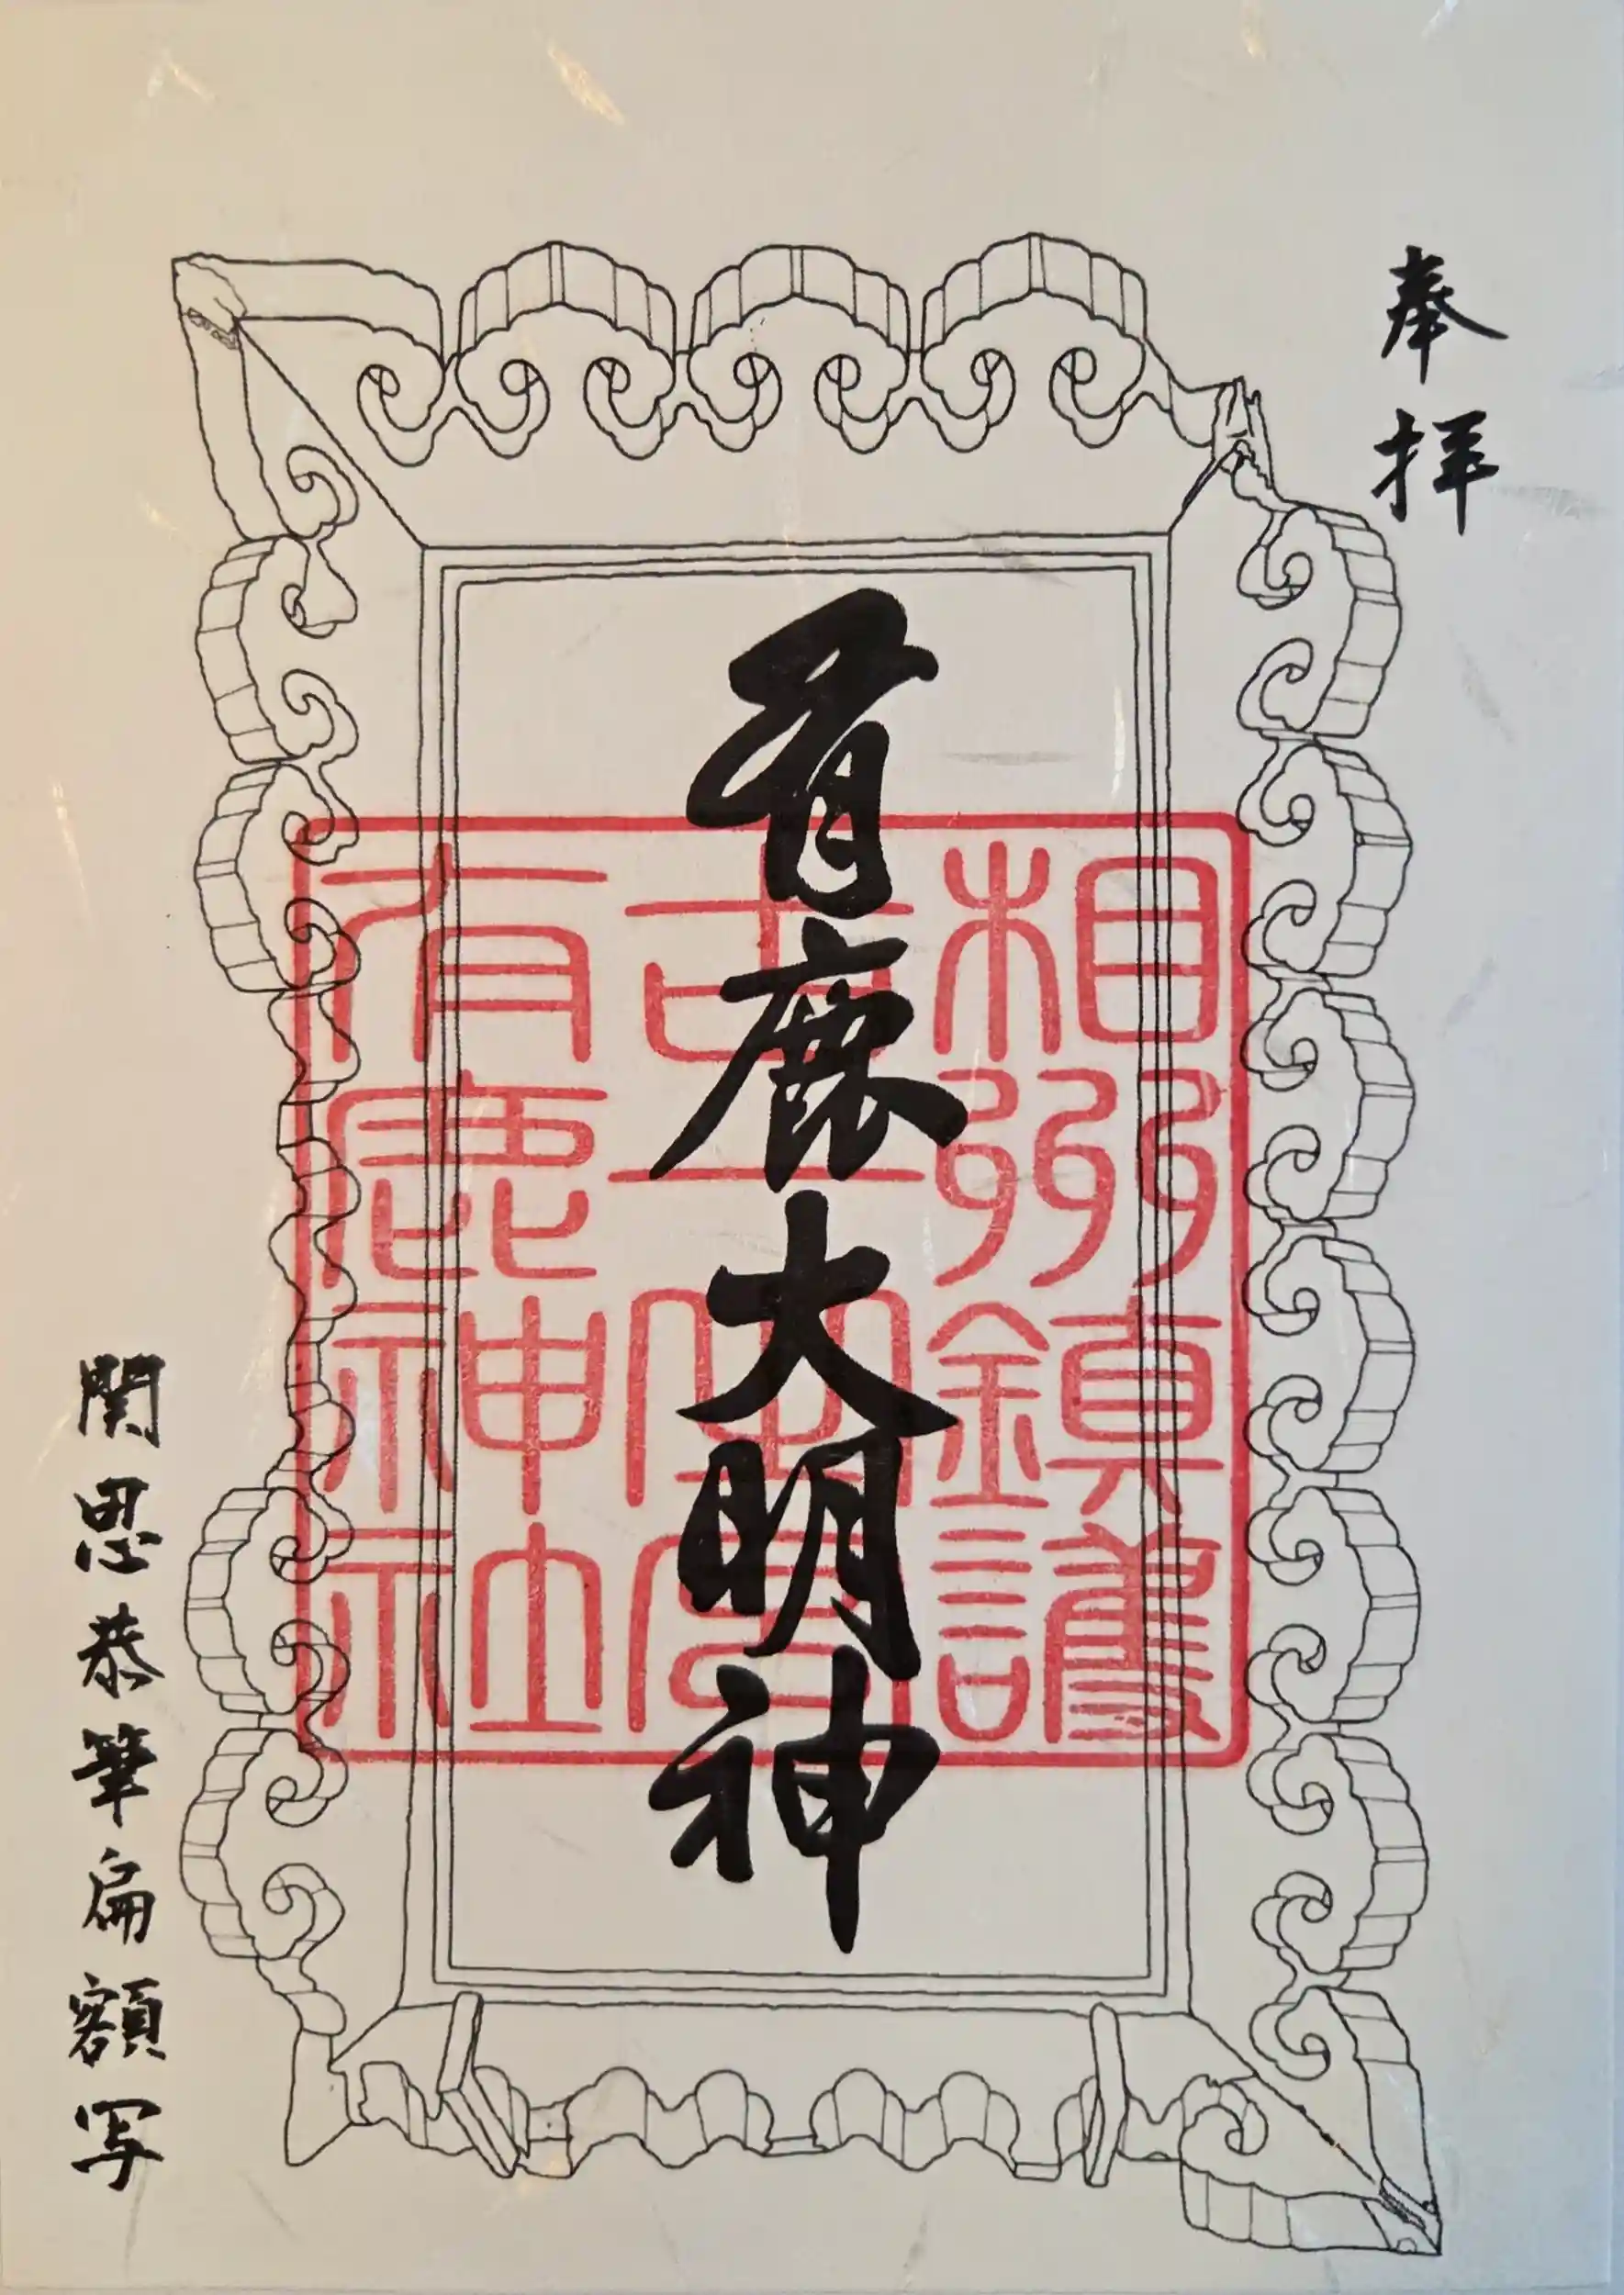 奉拝
有鹿大明神
相州鎮護
有鹿神社
関思恭筆扁額写